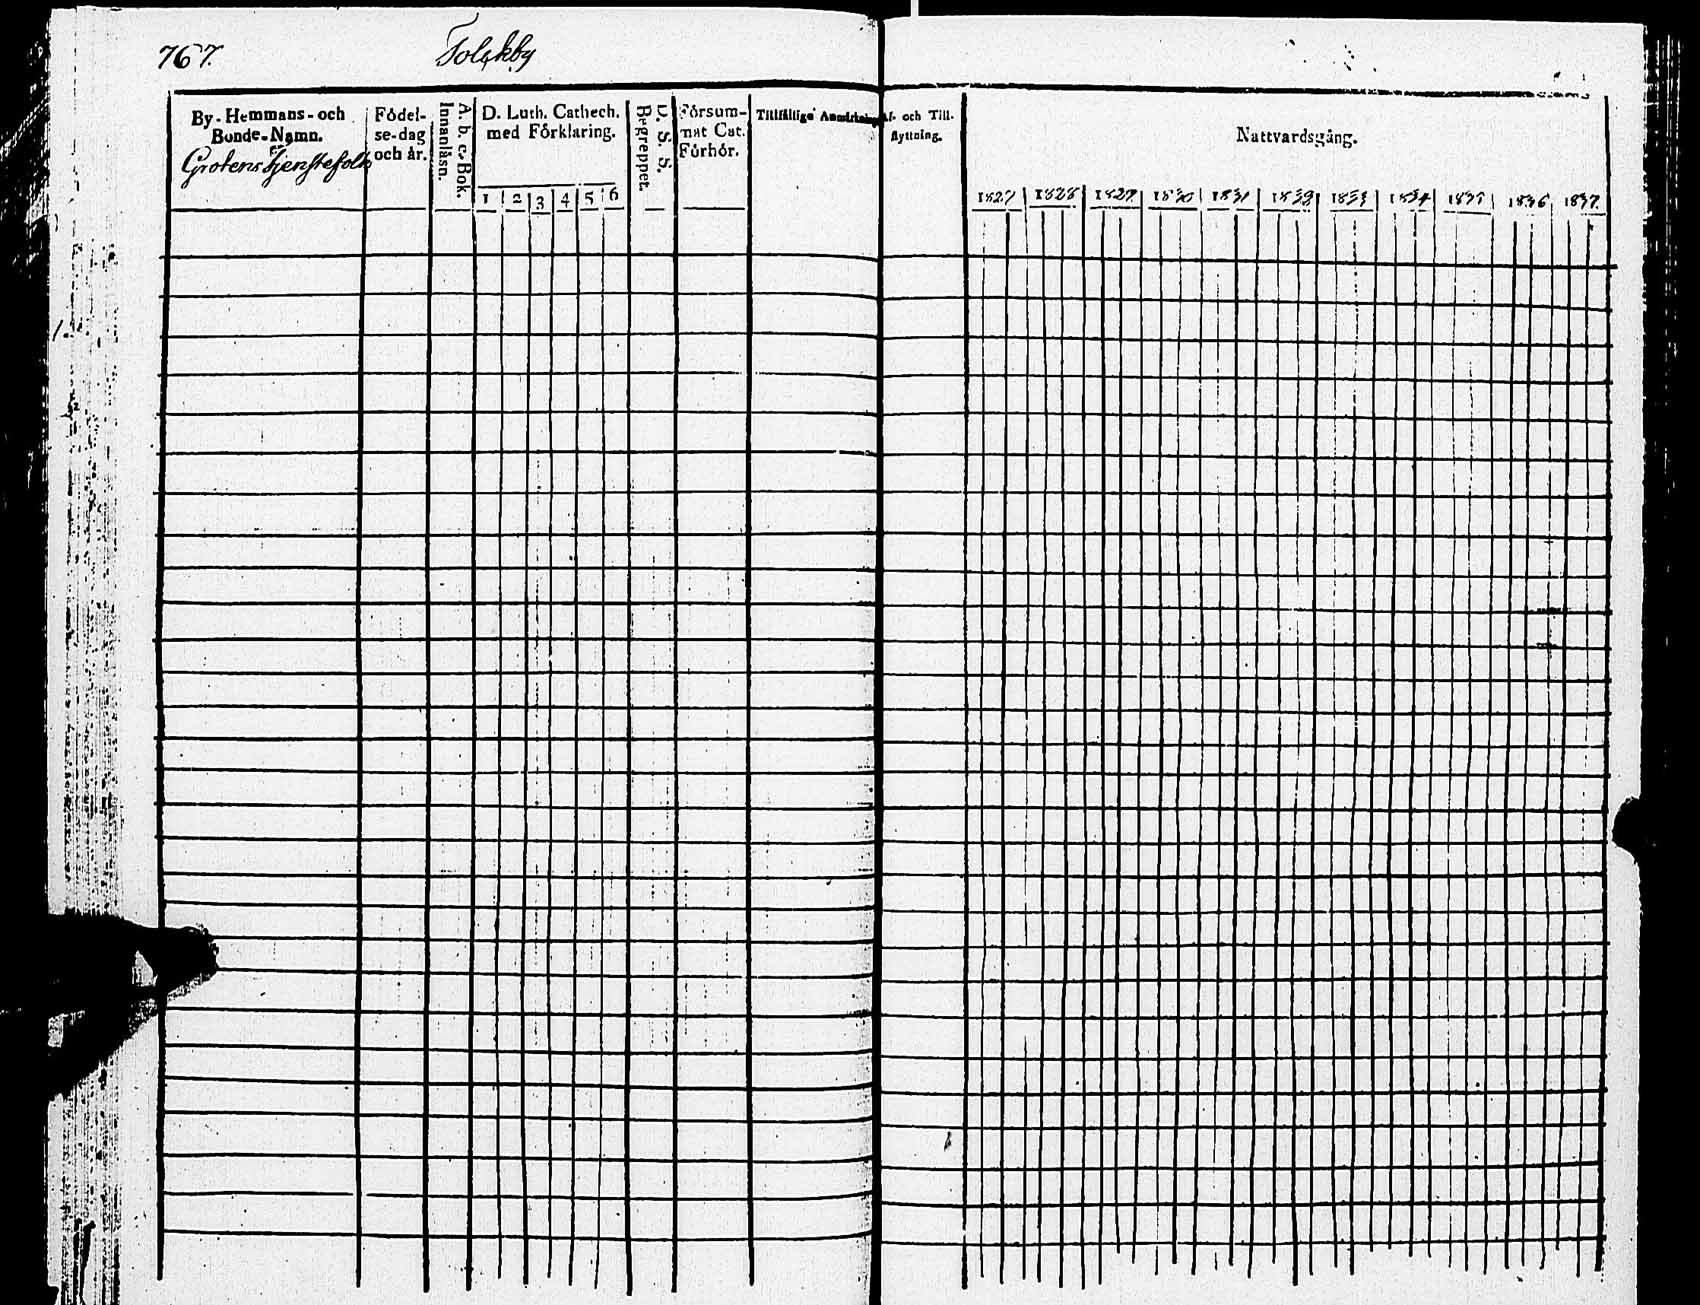 767.
Solskby
By-Hemmans- och
Bonde-Namn.
Grotens tjenstefolk
Födel-
se-dag
och år.
A. b. c. Bok.
Innanläsn.
D. Luth. Cathech.
med Förklaring.
1 2 3 4 5 6
D. S. S.
Begreppet.
Försum-
mat Cat.
Förhör.
Tillfällige Anmärkning
Af- och Till-
flyttning.
Nattvardsgång.
1827 1828 1829 1830 1831 1832 1833 1834 1835 1836 1837